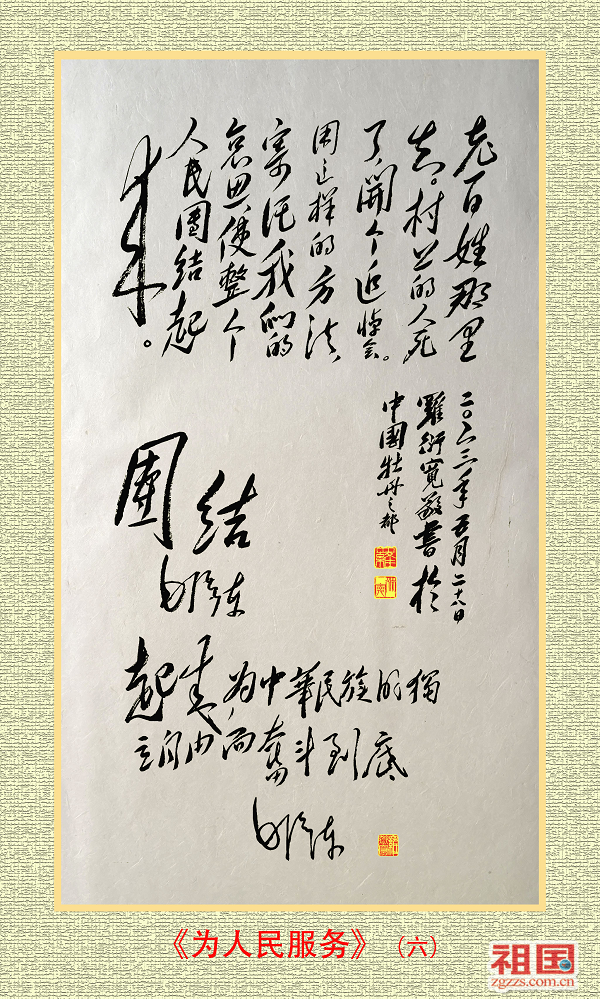 老百姓那里
去。村上的人死
了，開个追悼会。
用这样的方法，
寄托我们的
哀思，使整个
人民團结起
来。
二〇二三年五月二十八日
羅衍寬敬書於
中國牡丹之都
團结
毛泽东
起来，为中華民族的獨
立自由而奮斗到底
毛泽东
《为人民服务》（六）
祖国
zgzzs.com.cn